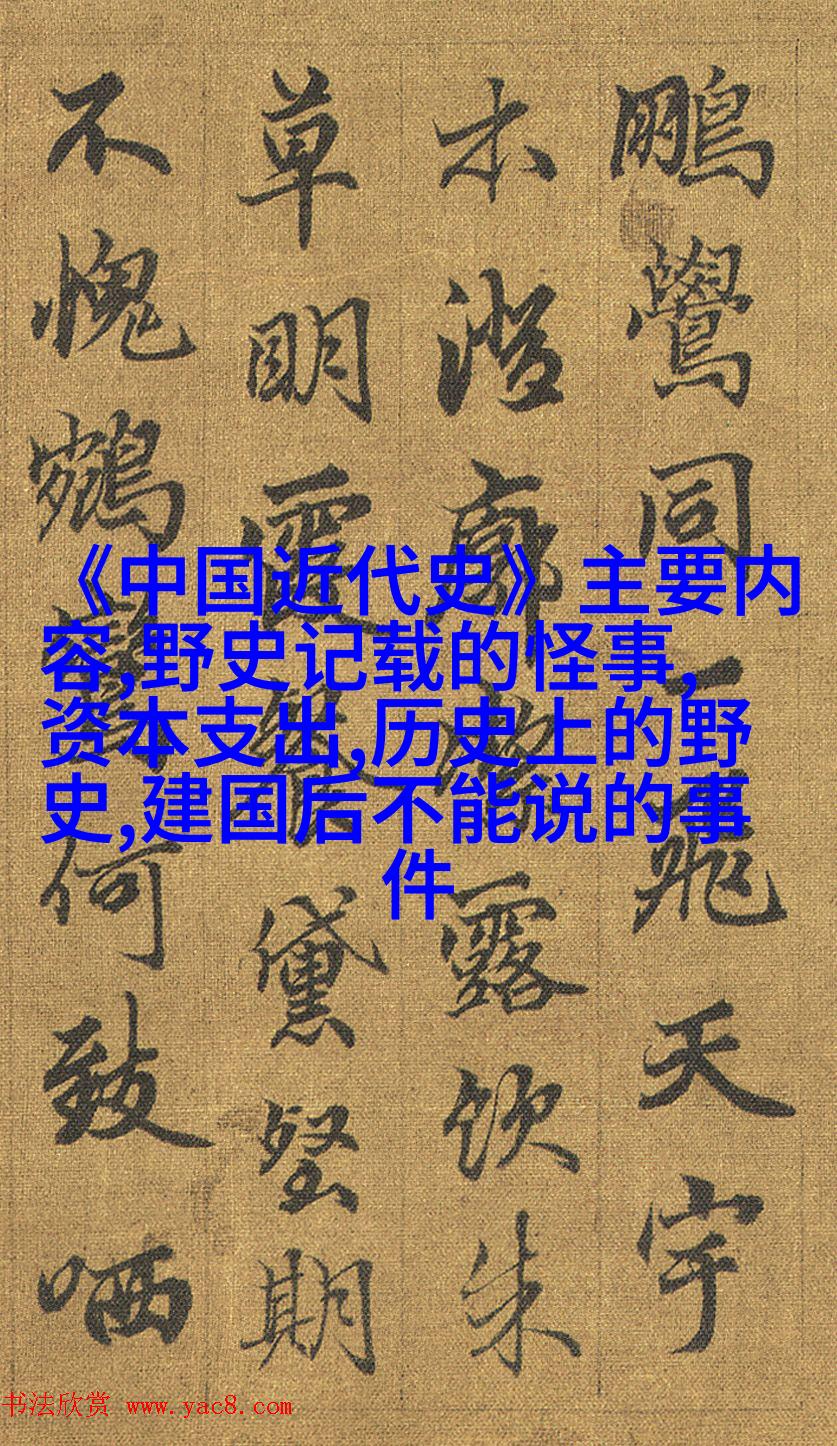 《中国近代史》主要内
容,野史记载的怪事,
资本支出,历史上的野
史,建国后不能说的事
件
鵬鷽同一飛天宇
本澄廓露飲朱
草明霞黛期
不愧鶴鸞何致哂
书法欣赏 www.yac8.com